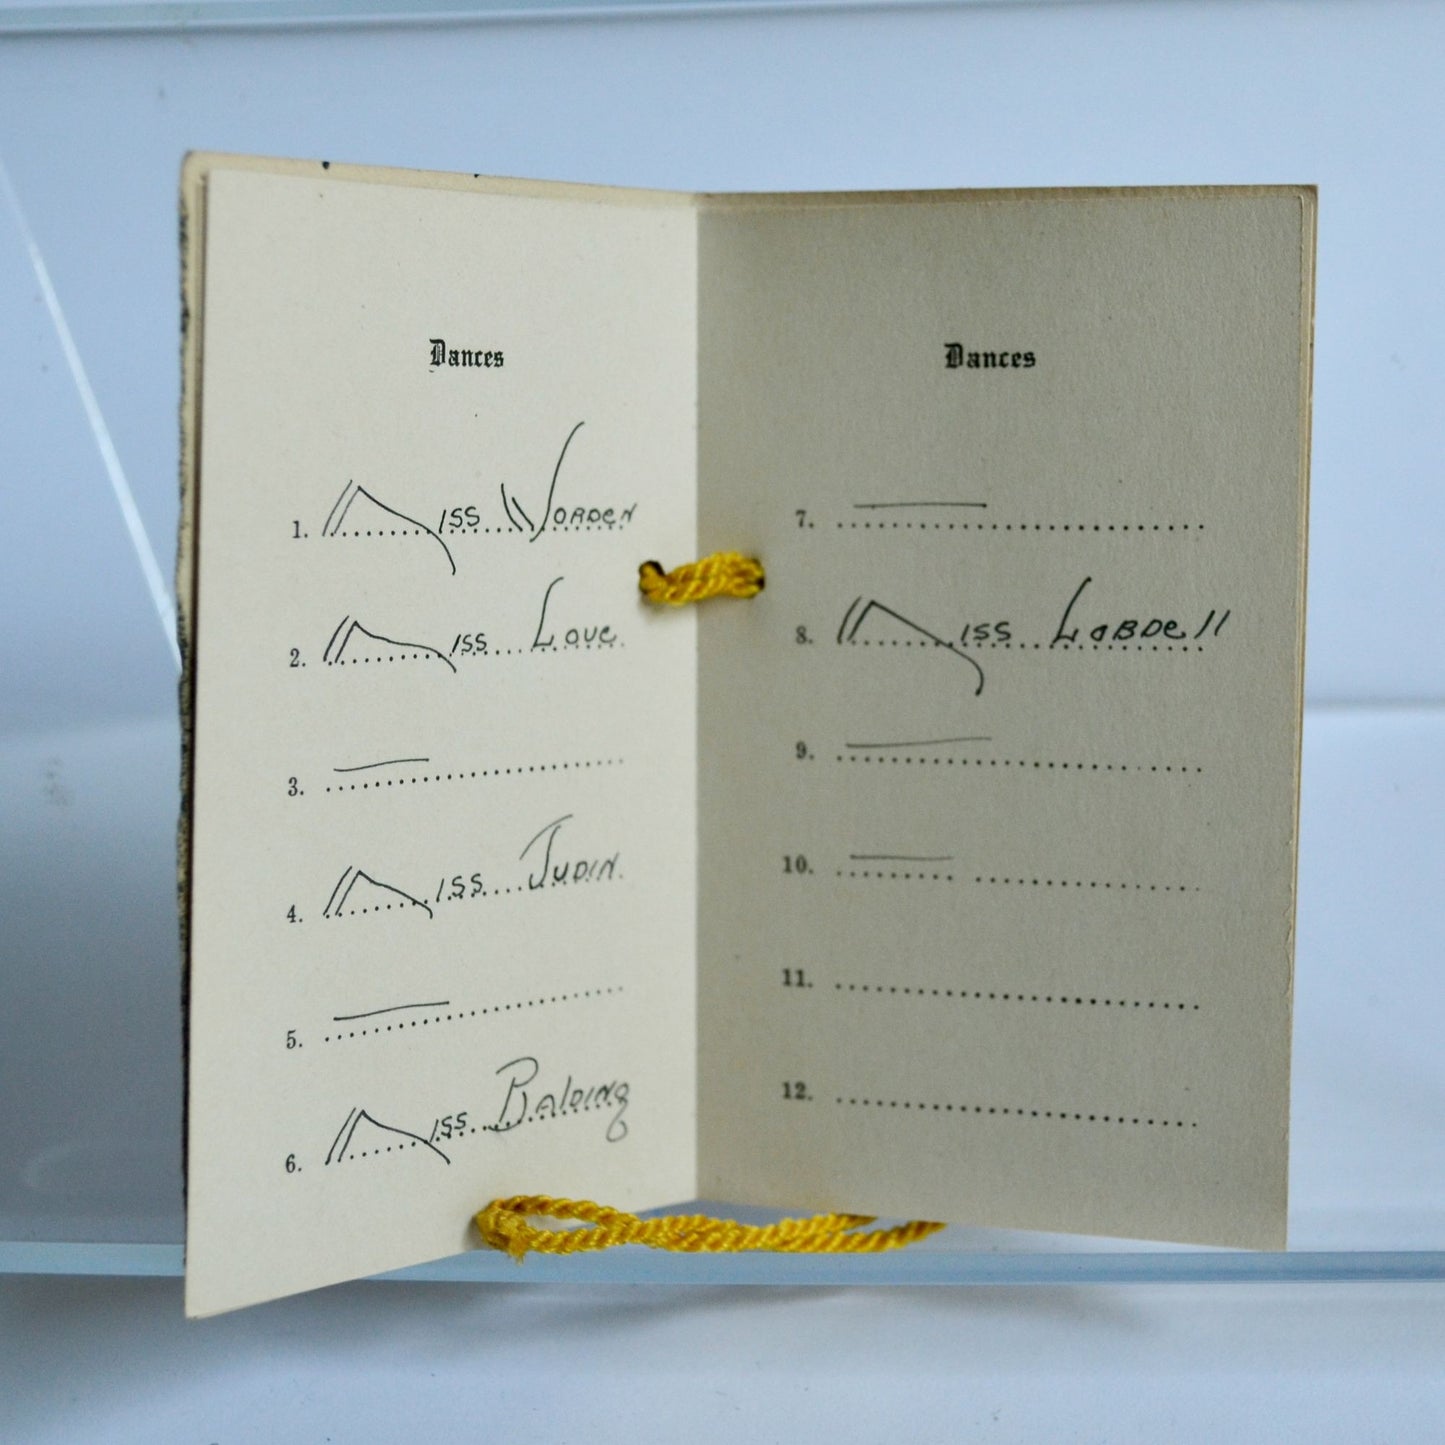 Dances
1. Miss Worden
2. Miss Love
3. —
4. Miss Judin
5. —
6. Miss Balding
Dances
7. —
8. Miss Labdell
9. —
10. —
11.
12.